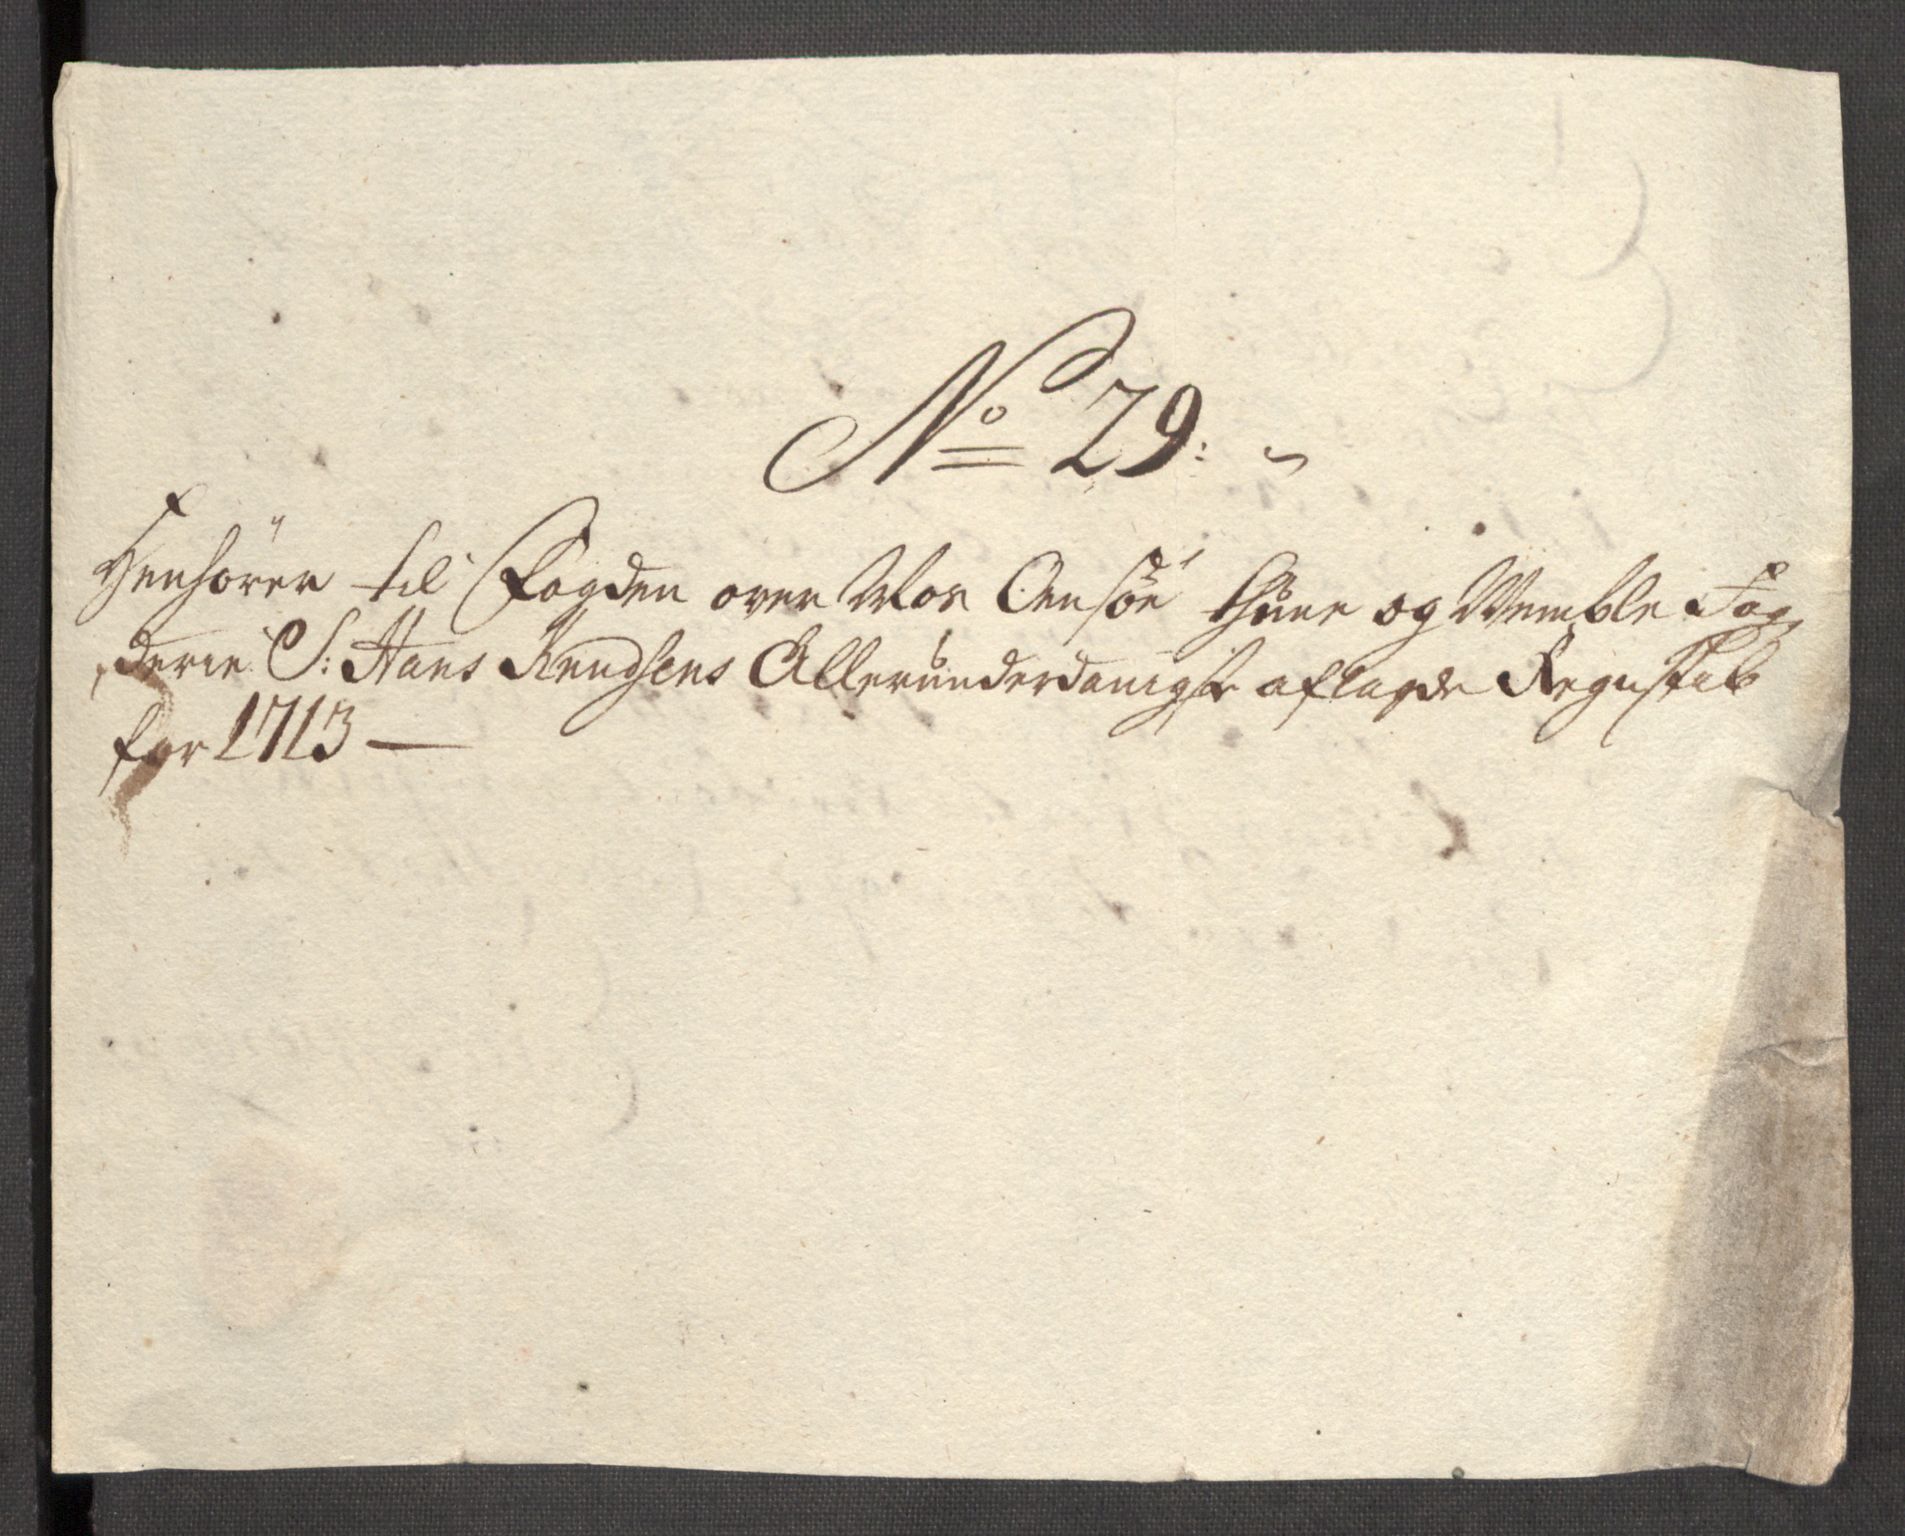 No 29: ~
Henhörer til Fogden over Mos Onsöe thüne og Wemble Fog
derie S: Hans Knudsens Allerunderdanigste aflagde Regnskab
for 1713 —